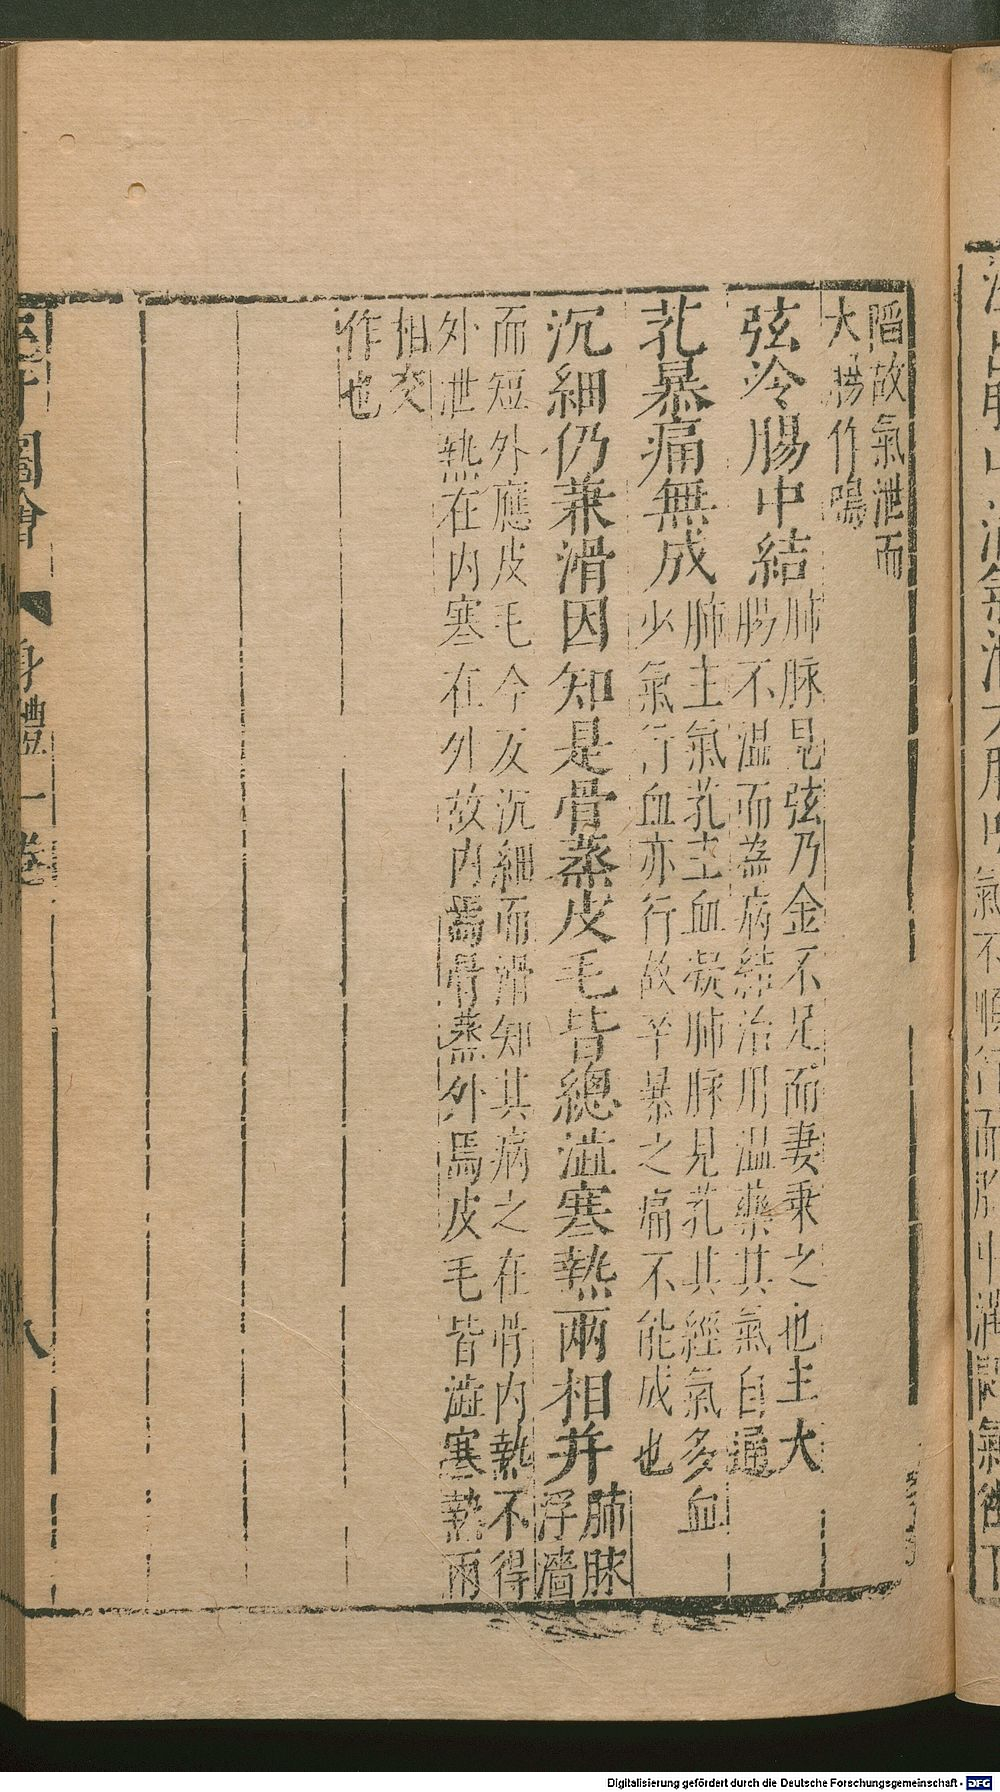 陷故氣泄而
大腸作鳴
弦冷腸中結
肺脉見弦乃金不足而妻乗之也主大
腸不温而為病結治用温藥其氣自通
芤暴痛無成
肺主氣芤主血凝肺脉見芤其經氣多血
少氣行血亦行故卒暴之痛不能成也
沉細仍兼滑因知是骨蒸皮毛皆總澁寒熱兩相并
肺脉
浮濇
而短外應皮毛今反沉細而滑知其病之在骨内熱不得
外泄熱在内寒在外故内爲骨蒸外爲皮毛皆澁寒熱兩
相交
作也
圖會
身體一卷
八
Digitalisierung gefördert durch die Deutsche Forschungsgemeinschaft - DFG